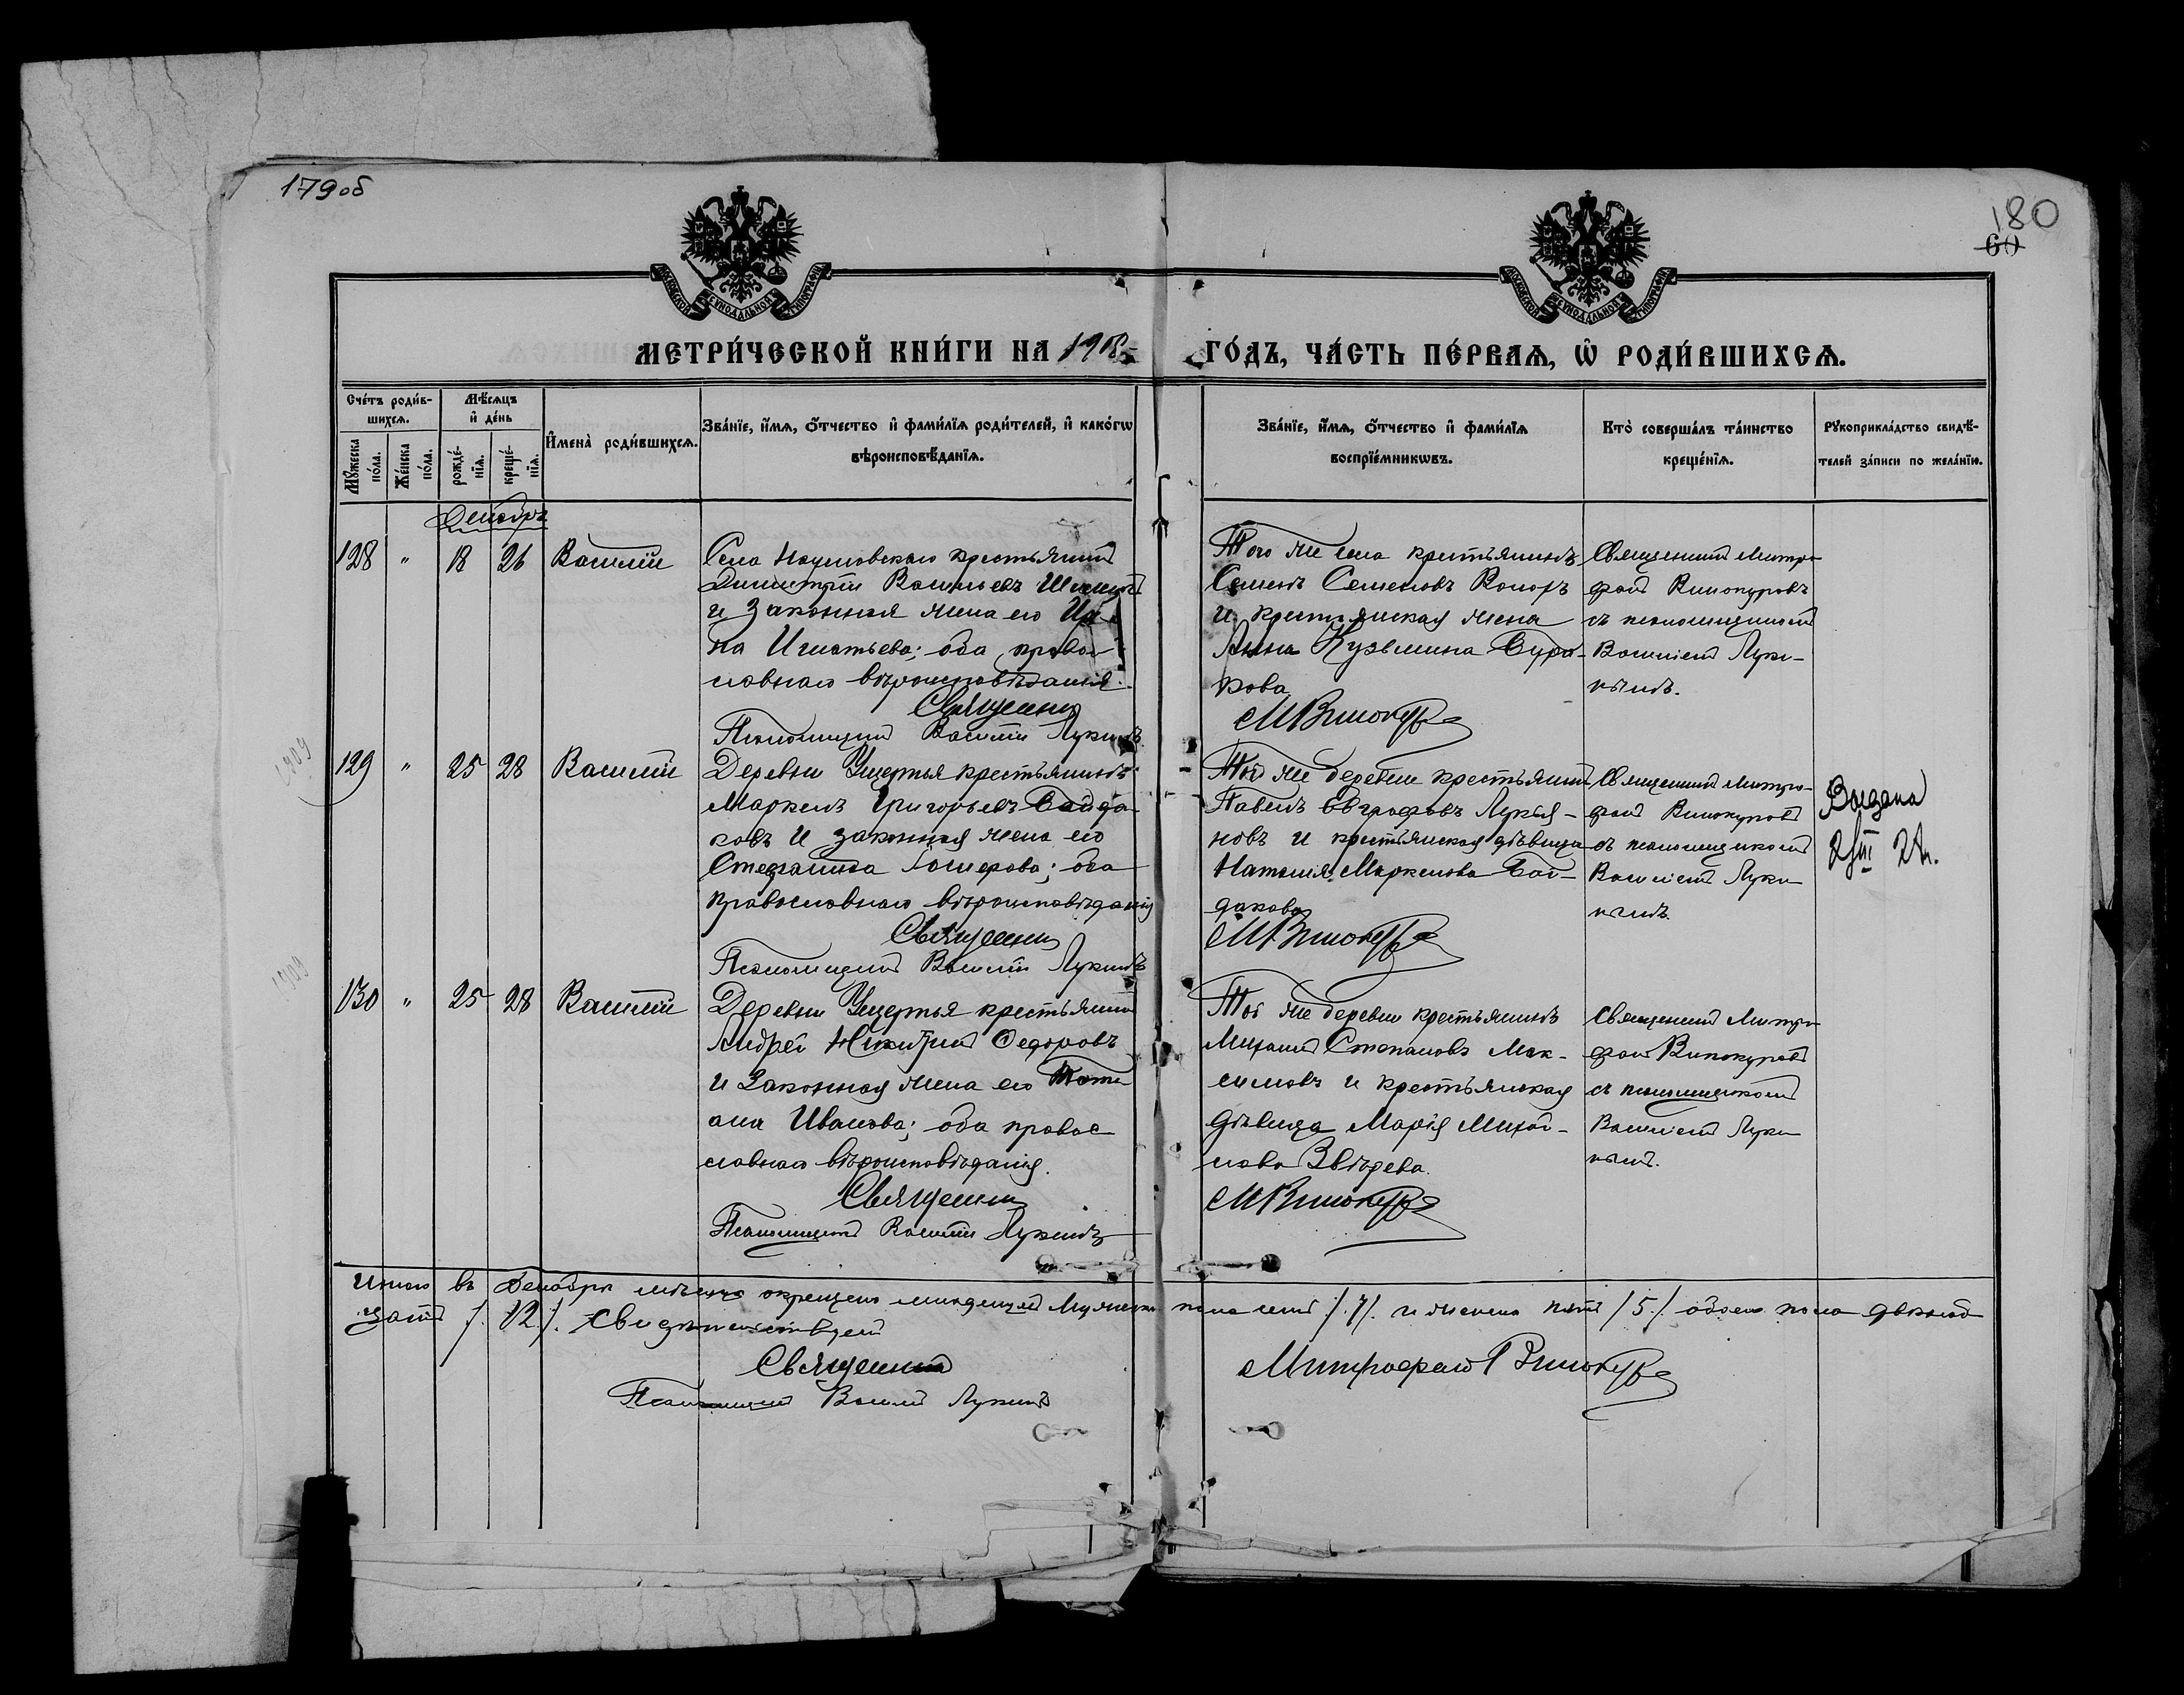 179 об
180
60
МОСКОВСКОЙ СУНОДАЛЬНОЙ ТИПОГРАФІИ
МОСКОВСКОЙ СУНОДАЛЬНОЙ ТИПОГРАФІИ
МЕТРИ́ЧЕСКОЙ КНИ́ГИ НА 1908
ГО́ДЪ, ЧА́СТЬ ПЕ́РВАѦ, Ѡ҆ РОДИ́ВШИХСѦ.
Сче́тъ роди́в-
шихсѧ.
Мꙋ́жеска
по́ла.
Же́нска
по́ла.
Мѣ́сѧцъ
и҆ де́нь
рожде́-
нїѧ.
креще́-
нїѧ.
И҆мена̀ роди́вшихсѧ.
Зва́нїе, и҆́мѧ, ѻ҆́тчество и҆ фами́лїѧ роди́телей, и҆ како́гѡ
вѣроисповѣ́данїѧ.
Зва́нїе, и҆́мѧ, ѻ҆́тчество и҆ фами́лїѧ
воспрїе́мникѡвъ.
Кто̀ соверша́лъ та́инство
креще́нїѧ.
Рꙋкоприкла́дство свидѣ́-
телей за́писи по жела́нїю.
Декабрь
128 " 18 26 Василій
Села Наумовскаго крестьянинъ
Димитрій Васильевъ
и законная жена его
на Игнатьева; оба право
славнаго вѣроисповѣданія.
Священникъ
Псаломщикъ Василій Лукинъ
Того же села крестьянинъ
Семенъ Семеновъ
и крестьянская жена
Анна Кузьмина Бура-
кова
МВинокуровъ
Священникъ Митро
фанъ Винокуровъ
съ псаломщикомъ
Василіемъ Луки-
нымъ.
1909
129 " 25 28 Василій
Деревни Ущертья крестьянинъ
Маркелъ Григорьевъ Байда
ковъ и законная жена его
Стефанида; оба
православнаго вѣроисповѣданія
Священникъ
Псаломщикъ Василій Лукинъ
Той же деревни крестьянинъ
Павелъ Евграфовъ Лукья-
новъ и крестьянская дѣвица
Наталія Маркелова Бай-
дакова
МВинокуровъ
Священникъ Митро-
фанъ Винокуровъ
съ псаломщикомъ
Василіемъ Луки
нымъ.
Выдана
2/III 24г.
1909
130 " 25 28 Василій
Деревни Ущертья крестьянинъ
Андрей Никитинъ Федоровъ
и законная жена его Тать
ана Иванова; оба правос
славнаго вѣроисповѣданія.
Священникъ
Псаломщикъ Василій Лукинъ
Той же деревни крестьянинъ
Михаилъ Степановъ Мак-
симовъ и крестьянская
дѣвица Марія Михай-
лова Звѣрева.
МВинокуровъ
Священникъ Митро
фанъ Винокуровъ
съ псаломщикомъ
Василіемъ Луки
нымъ.
Итого въ Декабрѣ мѣсяцѣ окрещено младенцевъ мужеска пола семь /7/. и женска пять /5/. обоего пола двѣнад
цать /12/. Свидѣтельствуемъ
Священникъ Митрофанъ Винокуровъ
Псаломщикъ Василій Лукинъ